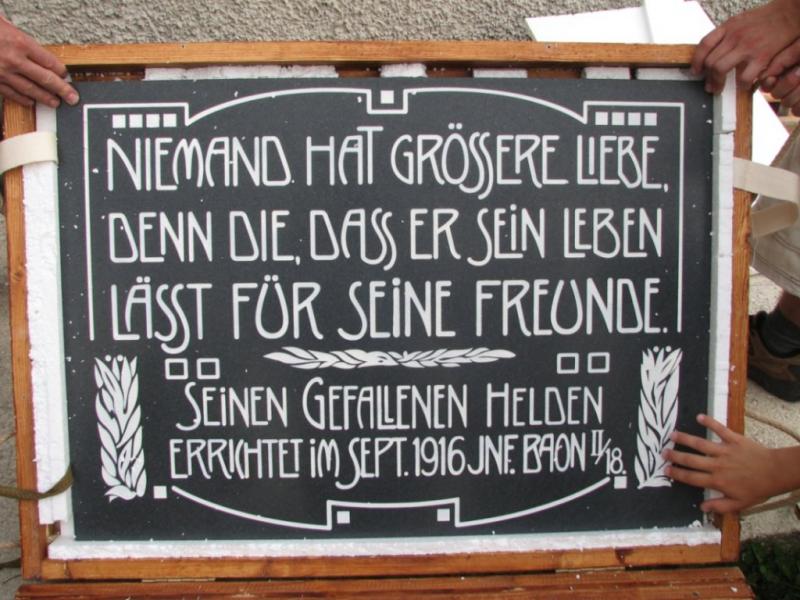 NIEMAND HAT GRÖSSERE LIEBE,
DENN DIE, DASS ER SEIN LEBEN
LÄSST FÜR SEINE FREUNDE.
SEINEN GEFALLENEN HELDEN
ERRICHTET IM SEPT. 1916 JNF. BAON II/18.